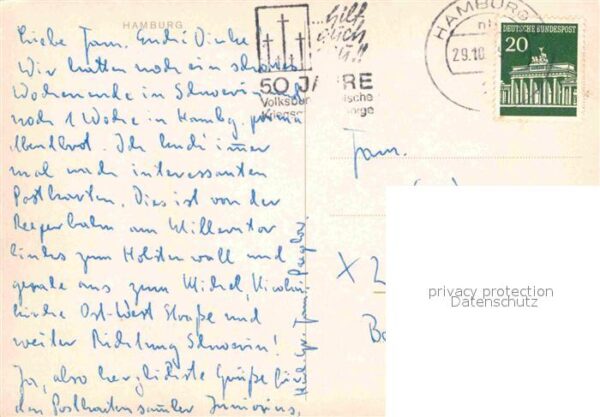 HAMBURG
Liebe Fam.
Wir hatten noch ein schönes
Wochenende in Schwerin und
noch 1 Woche in Hambg. prima
Ich suche immer
mal nach interessanten
Postkarten. Dies ist von der
Reeperbahn am Millerntor
links zum Holstenwall und
gerade aus zum Michel, Nicolai
kirche Ost-West Straße und
weiter Richtung Schwerin!
Ja, also herzlichste Grüße für
den Postkartensammler Juniorius,
Fam.
...hilf
auch
DU!!
50 JAHRE
HAMBURG
29.10.
DEUTSCHE BUNDESPOST
20
Fam.
X 2
privacy protection
Datenschutz